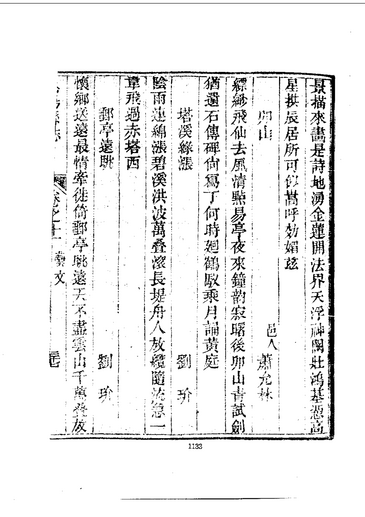 景描來畫是詩地湧金蓮開法界天浮神闕壯鴻基憑高
星拱辰居所可仰嵩呼効媚玆
卯山 邑人 蕭允
縹緲飛仙去風清點易亭夜來鐘韵寂曙後卯山青試劍
猶遺石傳碑尚寫丁何時廻鶴馭乘月誦黃庭
塔溪綠漲 劉 玠
陰雨連綿漲碧溪洪波萬叠滾長堤舟人放纜隨流急一
葦飛過赤塔西
郵亭遠眺 劉 玠
懷鄉送遠最情牽徒倚郵亭眺遠天不盡雲山千萬叠放
卷之十一 藝文
1133